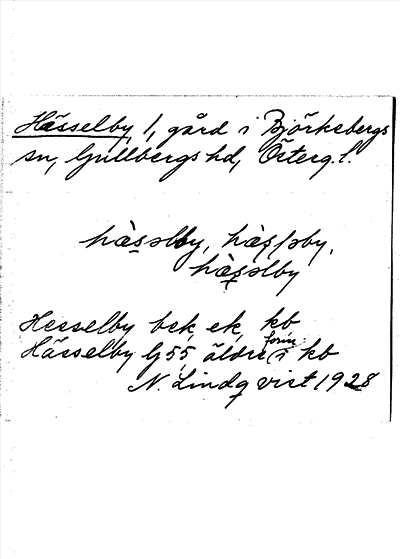 Hässelby 1, gård i Björkebergs
sn, Gullbergs hd, Österg. l.
hàsəlby,
Hesselby bek, ek, kb
Hässelby G 55, äldre form i kb
N. Lindqvist 1928